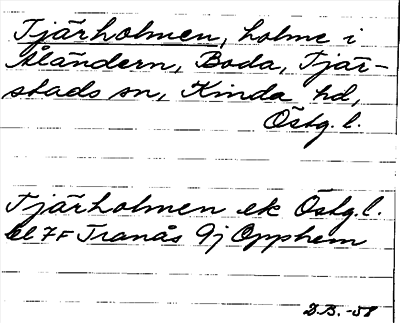 Tjärholmen, holme i
Åländern, Boda, Tjär-
stads sn, Kinda hd,
Östg. l.
Tjärholmen ek Östg. l.
bl 7F Tranås 9j Opphem
D.B. -58